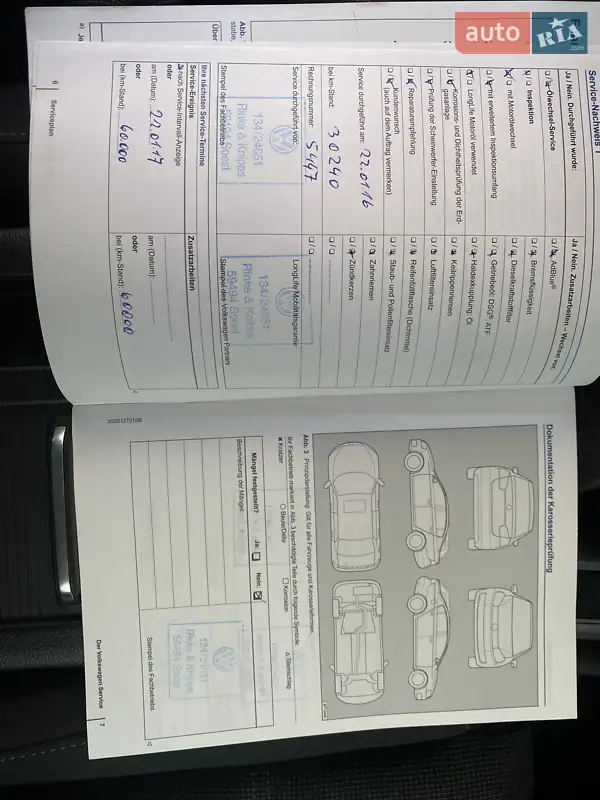 auto RIA.com
Service-Nachweis 1
Ja / Nein: Durchgeführt wurde:
Ölwechsel-Service
Inspektion
mit Motorölwechsel
mit erweitertem Inspektionsumfang
LongLife Motoröl verwendet
Korrosions- und Dichtheitsprüfung der Erdgasanlage
Prüfung der Scheinwerfer-Einstellung
Reparaturempfehlung
Kundenwunsch
(auch auf dem Auftrag vermerken)
Service durchgeführt am: 22.01.16
bei km-Stand: 30240
Rechnungsnummer: 5447
Service durchgeführt von:
134/24651
Rinke & Knipps
59494 Soest
Stempel des Fachbetriebs
Ja / Nein: Zusatzarbeiten – Wechsel von:
AdBlue®
Bremsflüssigkeit
Dieselkraftstofffilter
Getriebeöl: DSG® / ATF
Haldexkupplung: Öl
Keilrippenriemen
Luftfiltereinsatz
Reifenfüllflasche (Dichtmittel)
Staub- und Pollenfiltereinsatz
Zahnriemen
Zündkerzen
LongLife Mobilitätsgarantie:
134/24651
Rinke & Knipps
59494 Soest
Stempel des Volkswagen Partners
Ihre nächsten Service-Termine
Service-Ereignis
nach Service-Intervall-Anzeige
oder
am (Datum): 22.01.17
oder
bei (km-Stand): 60.000
Zusatzarbeiten
am (Datum):
oder
bei (km-Stand): 60000
6 Serviceplan
Dokumentation der Karosserieprüfung
Abb. 3 Prinzipdarstellung: Gilt für alle Fahrzeuge und Karosserieformen.
Ihr Fachbetrieb markiert in Abb. 3 beschädigte Teile durch folgende Symbole:
× Kratzer ○ Beule/Delle □ Korrosion △ Steinschlag
Mängel festgestellt? Ja: Nein:
Beschreibung der Mängel:
134/24651
Rinke & Knipps
59494 Soest
Stempel des Fachbetriebs
3G0012701SB
Der Volkswagen Service 7
Über
Abb.